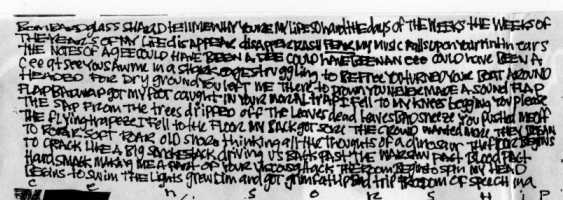 GLASS SHARD TELL ME WHY YOU'RE MY LIFE SO HARD THE DAYS OF THE WEEKS THE WEEKS OF
THE YEARS OF MY LIFE DISAPPEAR DISAPPEAR FEAR MY MUSIC FALLS UPON YOUR TIN TIN EARS
THE NOTES OF A GEE COULD HAVE BEEN A DEE COULD HAVE BEEN AN CEE COULD HAVE BEEN A
CEE AT SEE YOU SAW ME IN A SHARK CAGE STRUGGLING TO BE FREE YOU TURNED YOUR BOAT AROUND
HEADED FOR DRY GROUND YOU LEFT ME THERE TO DROWN YOU NEVER MADE A SOUND FLAP
FLAP GOT MY FOOT CAUGHT IN YOUR MORTAL TRAP I FELL TO MY KNEES BEGGING YOU PLEASE
THE SAP FROM THE TREES DRIPPED OFF THE LEAVES DEAD LEAVES AND SNEEZE YOU PUSHED ME OFF
THE FLYING TRAPEZE I FELL TO THE FLOOR MY BACK GOT SORE THE CROWD WANTED MORE THEY BEGAN
TO ROAR SOFT ROAR OLD SNORE THINKING ALL THE THOUGHTS OF A DINOSAUR THE FLOOR BEGINS
TO CRACK LIKE A BIG DRIVING US BACK PAST THE WARSAW PACT BLOOD PACT
HARD SMACK MAKING ME A PART OF YOUR VICIOUS ATTACK THE ROOM BEGINS TO SPIN MY HEAD
BEGINS TO SWIM THE LIGHTS GREW DIM AND GOT GRIM FAT LIP AND TRIP FREEDOM OF SPEECH IN A
C E N S O R S H I P